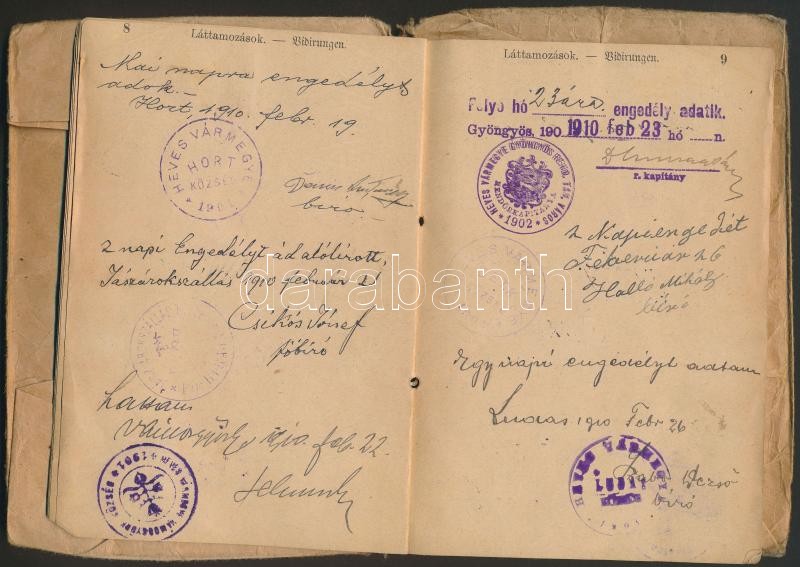 8
Láttamozások. — Vidirungen.
Mai napra engedélyt
adok.—
Hort, 1910. febr 19.
HEVES VÁRMEGYE
HORT
KÖZSÉG
biró
2 napi Engedélyt ád alólirott,
Jászárokszállás 1910 február 21
Csikós József
főbíró
Láttam
Vámosgyörk 1910. feb. 22.
1901
Láttamozások. — Vidirungen.
9
Folyó hó 23ára engedély adatik.
Gyöngyös, 190 1910 feb 23 hó n.
r. kapitány
HEVES VÁRMEGYE GYÖNGYÖS REND. TAN. VÁROS
RENDŐRKAPITÁNYA
1902
2 Napi engedjét
Február 26
Halló Mihály
biró
Egy napi engedélyt adtam
Ludas 1910 Febr 26
HEVES VÁRMEGYE
Dezső
biró
darabanth